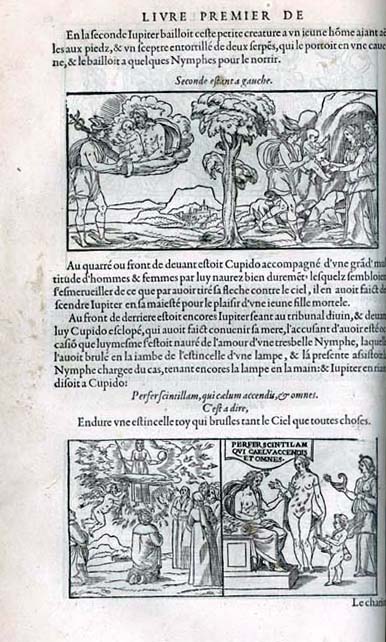 LIVRE PREMIER DE
En la seconde Iupiter bailloit ceste petite creature a vn jeune hõme aiant aë
les aux piedz, & vn sceptre entortillé de deux serpẽs, qui le portoit en vne cauer
ne, & le bailloit a quelques Nymphes pour le norrir.
Seconde estant a gauche.
Au quarré ou front de deuant estoit Cupido accompagné d'vne grãd' mul
titude d'hommes & femmes par luy naurez bien duremẽt: lesquelz sembloient
s'esmerueiller de ce que par auoir tiré sa flesche contre le ciel, il en auoit faict de
scendre Iupiter en sa maiesté pour le plaisir d'vne ieune fille mortele.
Au front de derriere estoit encores Iupiter au tribunal diuin, & deuant
luy Cupido esclopé, qui auoit faict conuenir sa mere, l'accusant d'auoir esté oc
casiõ que luymesme s'estoit nauré de l'amour d'vne tresbelle Nymphe, laquelle
l'auoit brulé en la iambe de l'estincelle d'vne lampe, & là presente assistoit
Nymphe chargee du cas, tenant encores la lampe en la main: & Iupiter en riant
disoit a Cupido:
Perfer scintillam, qui cælum accendis, & omnes.
C'est a dire,
Endure vne estincelle toy qui brusles tant le Ciel que toutes choses.
PERFER SCINTILAM
QVI CAELVACCENDIS
ET OMNES.
Le chariot